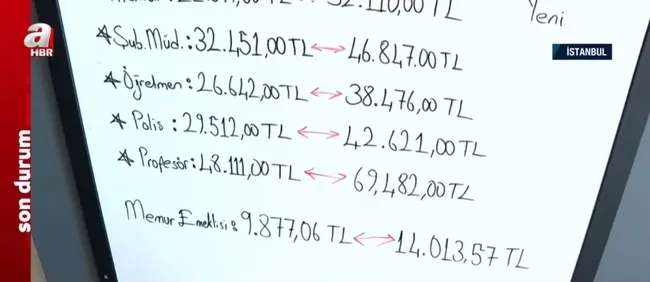 Yeni
a
HBR
İSTANBUL
son durum
* Şub.Müd.: 32.451,00 TL ↔ 46.847.00 TL
* Öğretmen: 26.642,00 TL ↔ 38.476,00 TL
* Polis: 29.512,00 TL ↔ 42.621,00 TL
* Profesör: 48.111,00 TL ↔ 69.482,00 TL
Memur Emeklisi: 9.877,06 TL ↔ 14.013,57 TL